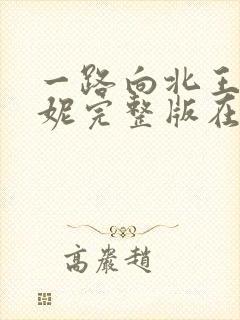 一路向北王
妮完整版在
高岩趙